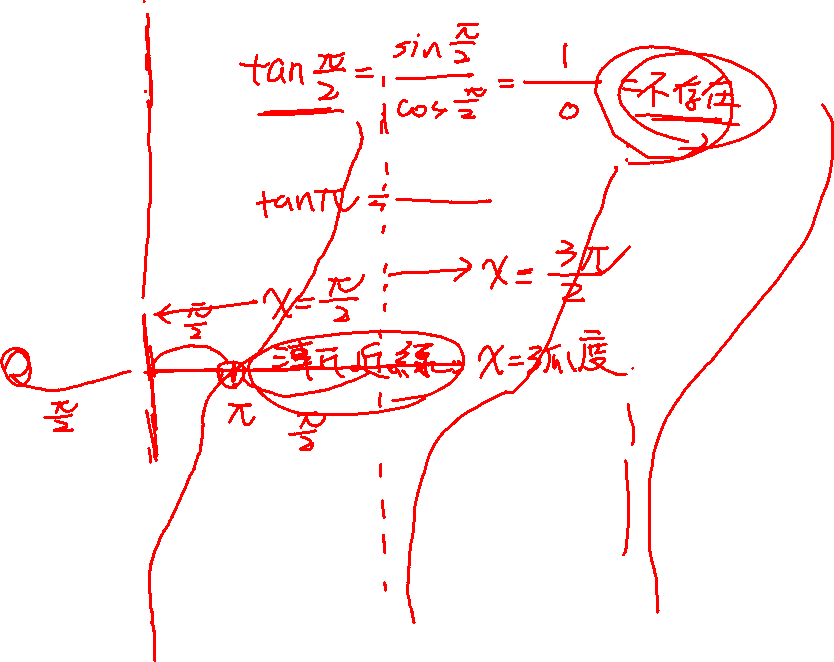 tan π/2 = sin π/2 / cos π/2 = 1/0 = 不存在
tan π =
x = π/2 → x = 3π/2
π/2
漸近線 x = 3弧度
π/2 π π/2